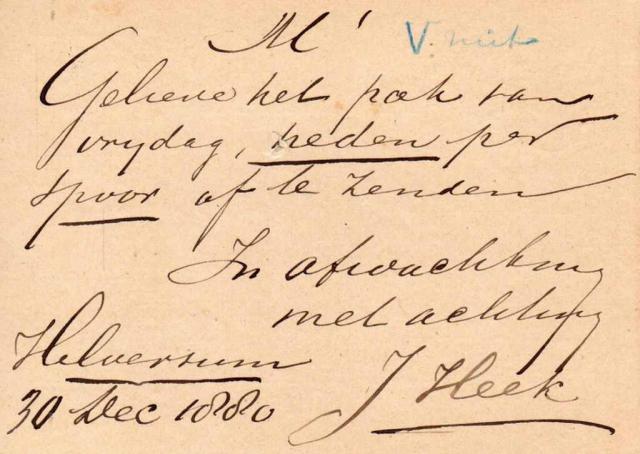 M'
Gelieve het pak van
vrydag, heden per
spoor af te zenden
In afwachting
met achting
J Heek
Hilversum
30 Dec 1880